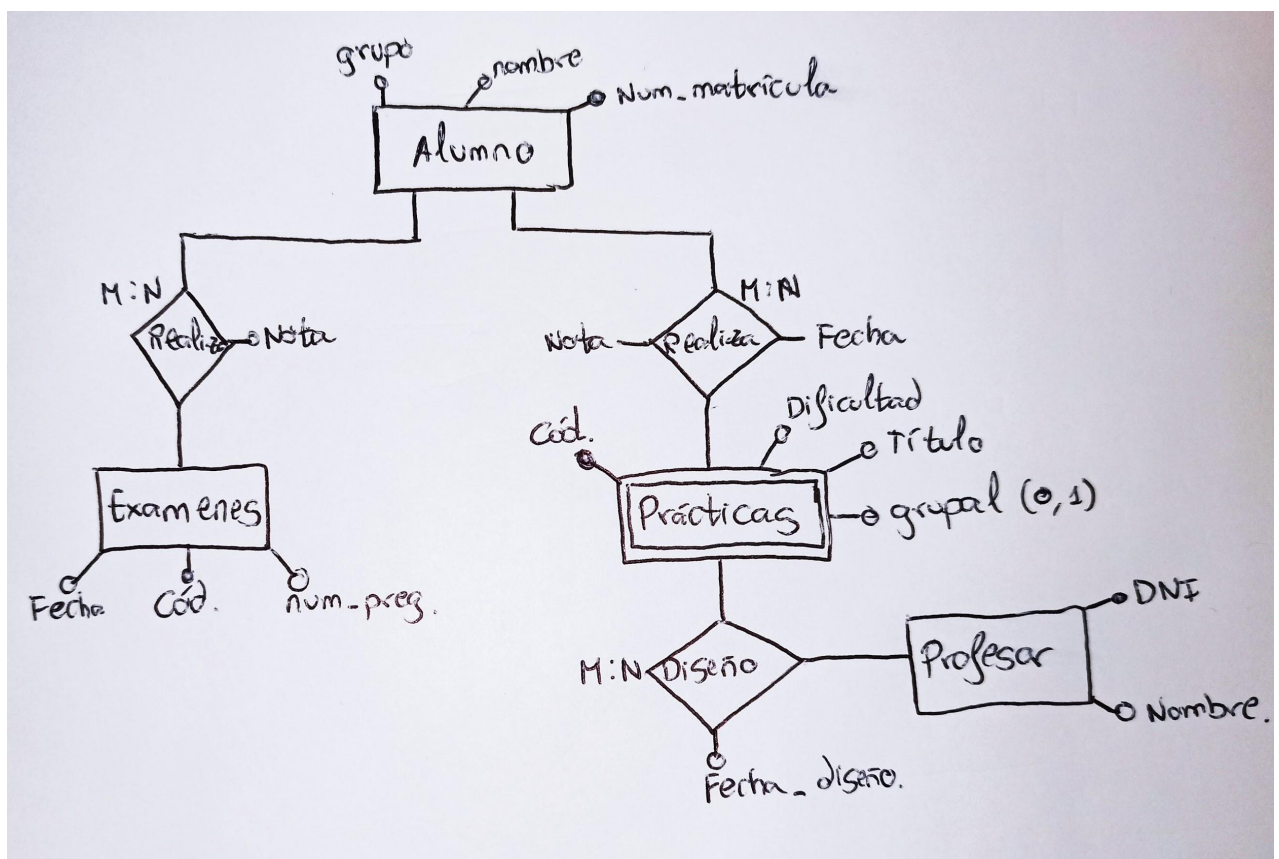 grupo
nombre
Num_matrícula
Alumno
M:N
Realiza
Nota
M:N
Nota
Realiza
Fecha
Examenes
Fecha
Cód.
num_preg.
Cód.
Dificultad
Título
Prácticas
grupal (0,1)
M:N
Diseño
Fecha_diseño.
Profesor
DNI
Nombre.